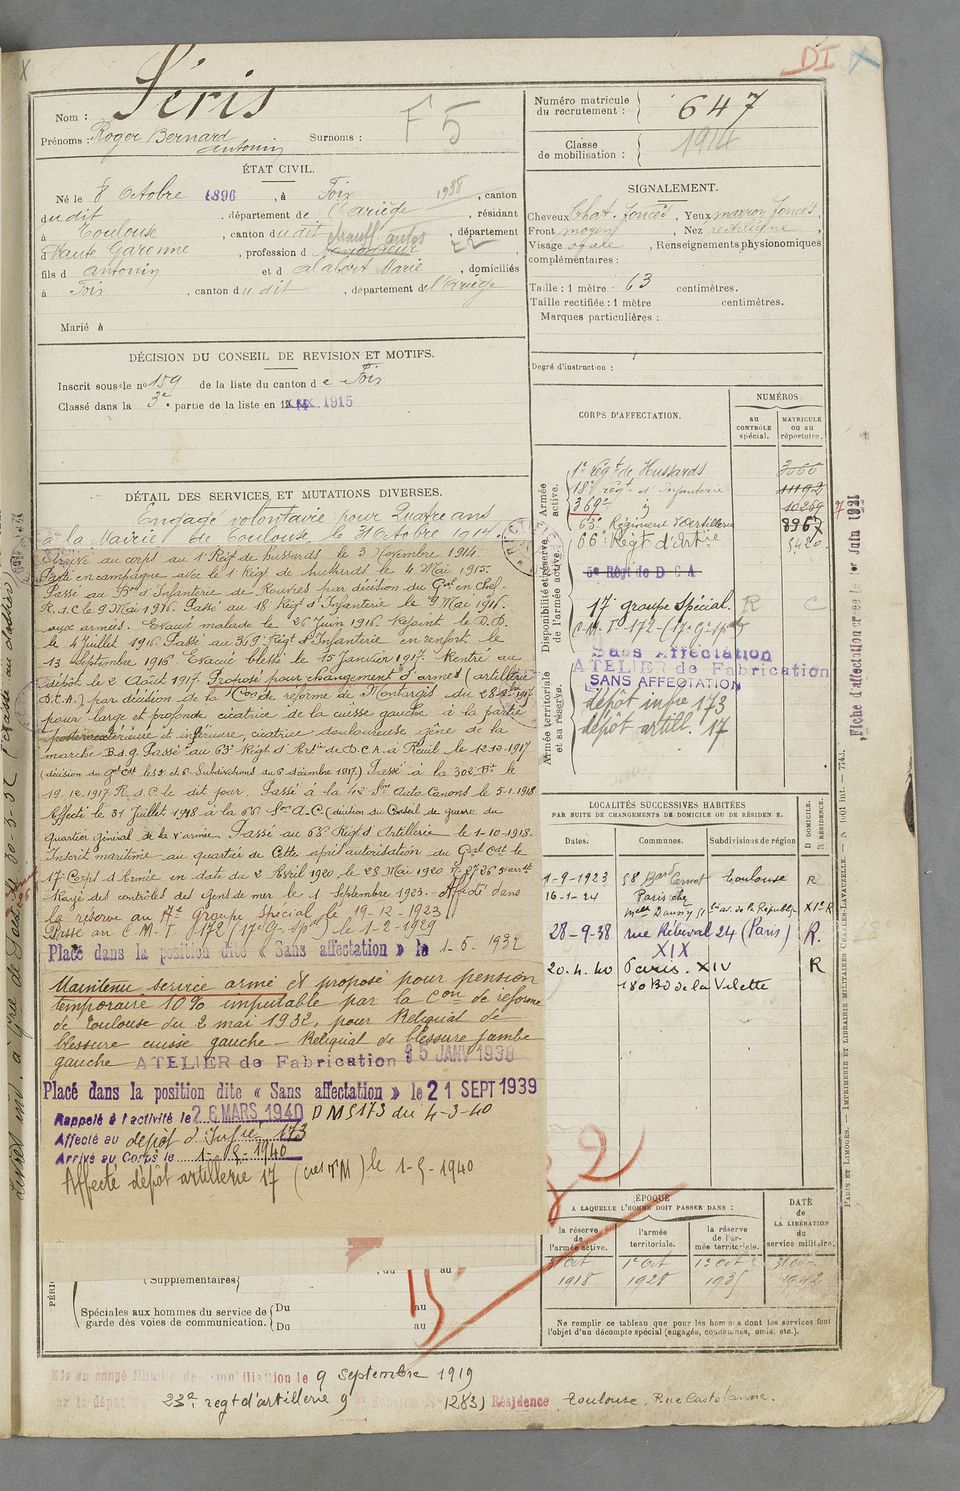 DI
Nom : Séris
Prénoms : Roger Bernard Surnoms :
Antonin
F5
ÉTAT CIVIL.
Né le 8 Octobre 1896, à Foix, canton
dudit, département de l'Ariège, résidant
1938
à Toulouse, canton dudit, département
chauff. autos
d Haute Garonne, profession d
fils d Antonin et d Alabert Marie, domiciliés
à Foix, canton dudit, département de l'Ariège
Marié à
DÉCISION DU CONSEIL DE REVISION ET MOTIFS.
Inscrit sous le no 159 de la liste du canton de Foix
Classé dans la 3e partie de la liste en 1915
Numéro matricule du recrutement : 647
Classe de mobilisation : 1914
SIGNALEMENT.
Cheveux Chat. foncés, Yeux marron foncés,
Front moyen, Nez rectiligne,
Visage ovale, Renseignements physionomiques
complémentaires :
Taille : 1 mètre 63 centimètres.
Taille rectifiée : 1 mètre centimètres.
Marques particulières :
Degré d'instruction :
DÉTAIL DES SERVICES ET MUTATIONS DIVERSES.
Engagé volontaire pour quatre ans
à la Mairie de Toulouse le 31 Octobre 1914.
Arrivé au corps au 1r Régt de hussards le 3 Novembre 1914.
Parti en campagne avec le 1 Régt de hussards le 4 Mai 1915.
Passé au Bon d'Infanterie de Rouvres par décision du Gal en Chef
R.d.C le 9 Mai 1916. Passé au 18 Régt d'Infanterie le 9 Mai 1916.
aux armées. Evacué malade le 26 Juin 1916. Rejoint le D.D.
le 4 Juillet 1916. Passé au 369e Régt d'Infanterie en renfort le
13 Septembre 1916. Evacué blessé le 15 Janvier 1917. Rentré au
dépôt le 2 Août 1917. Proposé pour changement d'armes (artillerie
D.C.A.) par décision de la Con de réforme de Montargis du 28-9-1917
pour large et profonde cicatrice de la cuisse gauche à la partie
extérieure et inférieure, cicatrice douloureuse gêne de la
marche B.d.g. Passé au 63e Régt d'Artie de D.C.A. à Rueil le 12.12.1917
(décision du Gal Cdt les 5 et 6 Subdivisions du 6 décembre 1917) Passé à la 302e Bie le
19.12.1917. R.d.C le dit jour. Passé à la 12 Son Auto Canons le 5-1-1918
Affecté le 31 Juillet 1918 à la 66 Son A.C. (décision du Conseil de guerre du
Quartier général de la V armée. Passé au 66 Régt d'Artillerie le 1-10-1918.
Inscrit maritime au quartier de Cette après autorisation du Gal Cdt le
17 Corps d'Armée en date du 2 Avril 1920 le 28 Mai 1920
Rayé des contrôles des gens de mer le 1 Septembre 1923. Affecté dans
la réserve au 17e Groupe Spécial le 19-12-1923
Passé au C.M.T 172 (17e G. Spal) le 1-2-1929
Placé dans la position dite « Sans affectation » le 1-5-1932
Maintenu service armé et proposé pour pension
temporaire 10% imputable par la Con de réforme
de Toulouse du 2 mai 1932, pour Reliquat de
blessure cuisse gauche - Reliquat de blessure jambe
gauche ATELIER de Fabrication 25 JANV 1938
Placé dans la position dite « Sans affectation » le 21 SEPT 1939
Rappelé à l'activité le 26 MARS 1940 DM 5173 du 4-3-40
Affecté au dépôt d'Infie 173
Arrivé au Corps le 1-5-1940
Affecté dépôt artillerie 17 le 1-5-1940
CORPS D'AFFECTATION.
NUMÉROS
AU CONTRÔLE spécial.
MATRICULE OU AU répertoire.
Armée active.
1e Régt de Hussards 3066
18e Régt d'Infanterie 11192
369e 10269
63e Régiment d'Artillerie 8967
66e Régt d'Artie 5420
Disponibilité et réserve de l'armée active.
5e Régt de DCA
17e groupe Spécial. R C
C.M.T 172 (17e G. Spal)
Sans Affectation
ATELIER de Fabrication
SANS AFFECTATION
Armée territoriale et sa réserve.
dépôt infie 173
dépôt artill. 17
Fiche d'affectation créée le 1er Juin 1921
LOCALITÉS SUCCESSIVES HABITÉES
PAR SUITE DE CHANGEMENTS DE DOMICILE OU DE RÉSIDENCE.
Dates. Communes. Subdivisions de région
D DOMICILE.
R RÉSIDENCE.
1-9-1923 58 Bard Carnot Toulouse R
16-1-24 Paris chez
Melle Daunny 51 av. de la Républiq
28-9-38 rue Rébeval 24 (Paris) R.
XIX
20.4.40 Paris. XIV R
180 Bd de la Villette
ÉPOQUE
A LAQUELLE L'HOMME DOIT PASSER DANS :
la réserve de l'armée active.
l'armée territoriale.
la réserve de l'armée territoriale.
DATE de LA LIBÉRATION du service militaire.
31 Oct 1918
1er Oct 1928
Ne remplir ce tableau que pour les hommes dont les services font
l'objet d'un décompte spécial (engagés, condamnés, omis, etc.).
PARIS ET LIMOGES. — IMPRIMERIE ET LIBRAIRIE MILITAIRES CHARLES-LAVAUZELLE.
(Supplémentaires)
Spéciales aux hommes du service de garde des voies de communication.
Du au
Du au
Mis en congé illimité de démobilisation le 9 Septembre 1919
23e regt d'artillerie 9 Echelon 1283) Résidence Toulouse, Rue Castelanne.